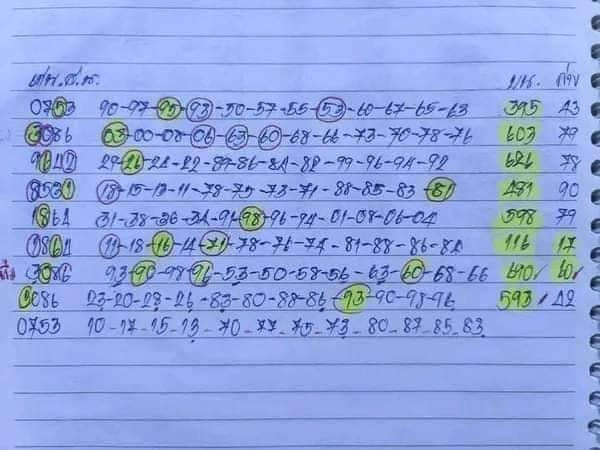 บน. ล่าง
0753 90-97-95-93-50-57-55-53-60-67-65-63 395 23
3086 03-00-08-06-63-60-68-66-73-70-78-76 603 79
9642 29-26-24-22-89-86-84-82-99-96-94-92 626 78
8531 18-15-13-11-78-75-73-71-88-85-83-81 481 90
1864 31-38-36-34-91-98-96-94-01-08-06-04 598 79
1864 11-18-16-14-71-78-76-74-81-88-86-84 116 17
3086 93-90-98-96-53-50-58-56-63-60-68-66 690 60
3086 23-20-28-26-83-80-88-86-93-90-98-96 593 42
0753 10-17-15-13-70-77-75-73-80-87-85-83